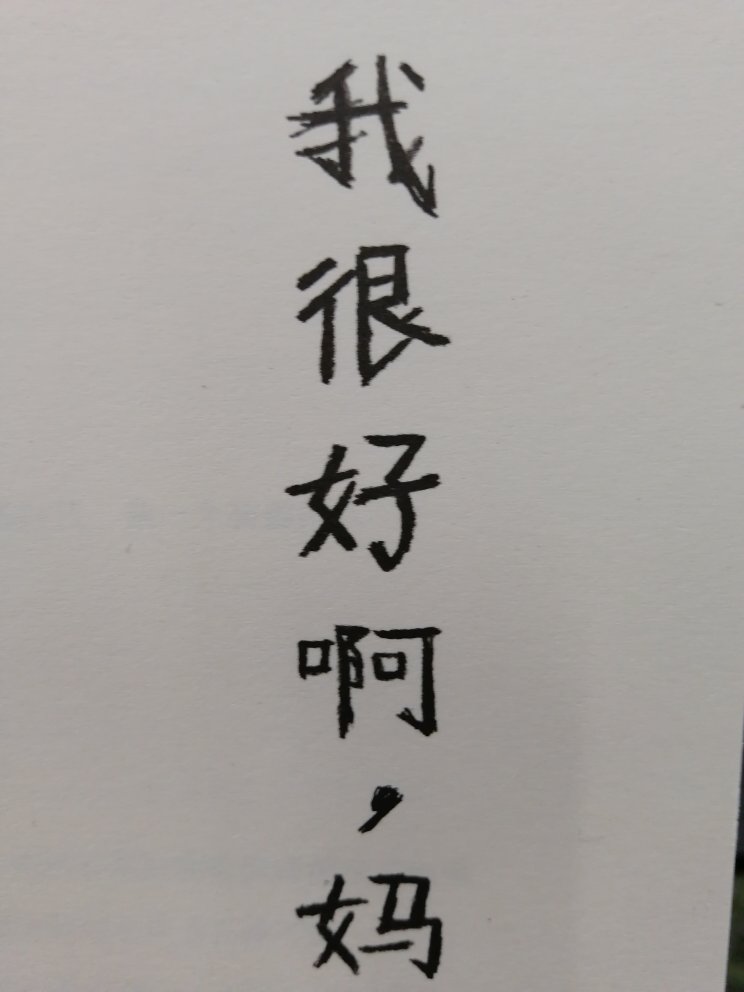 我很好啊，妈